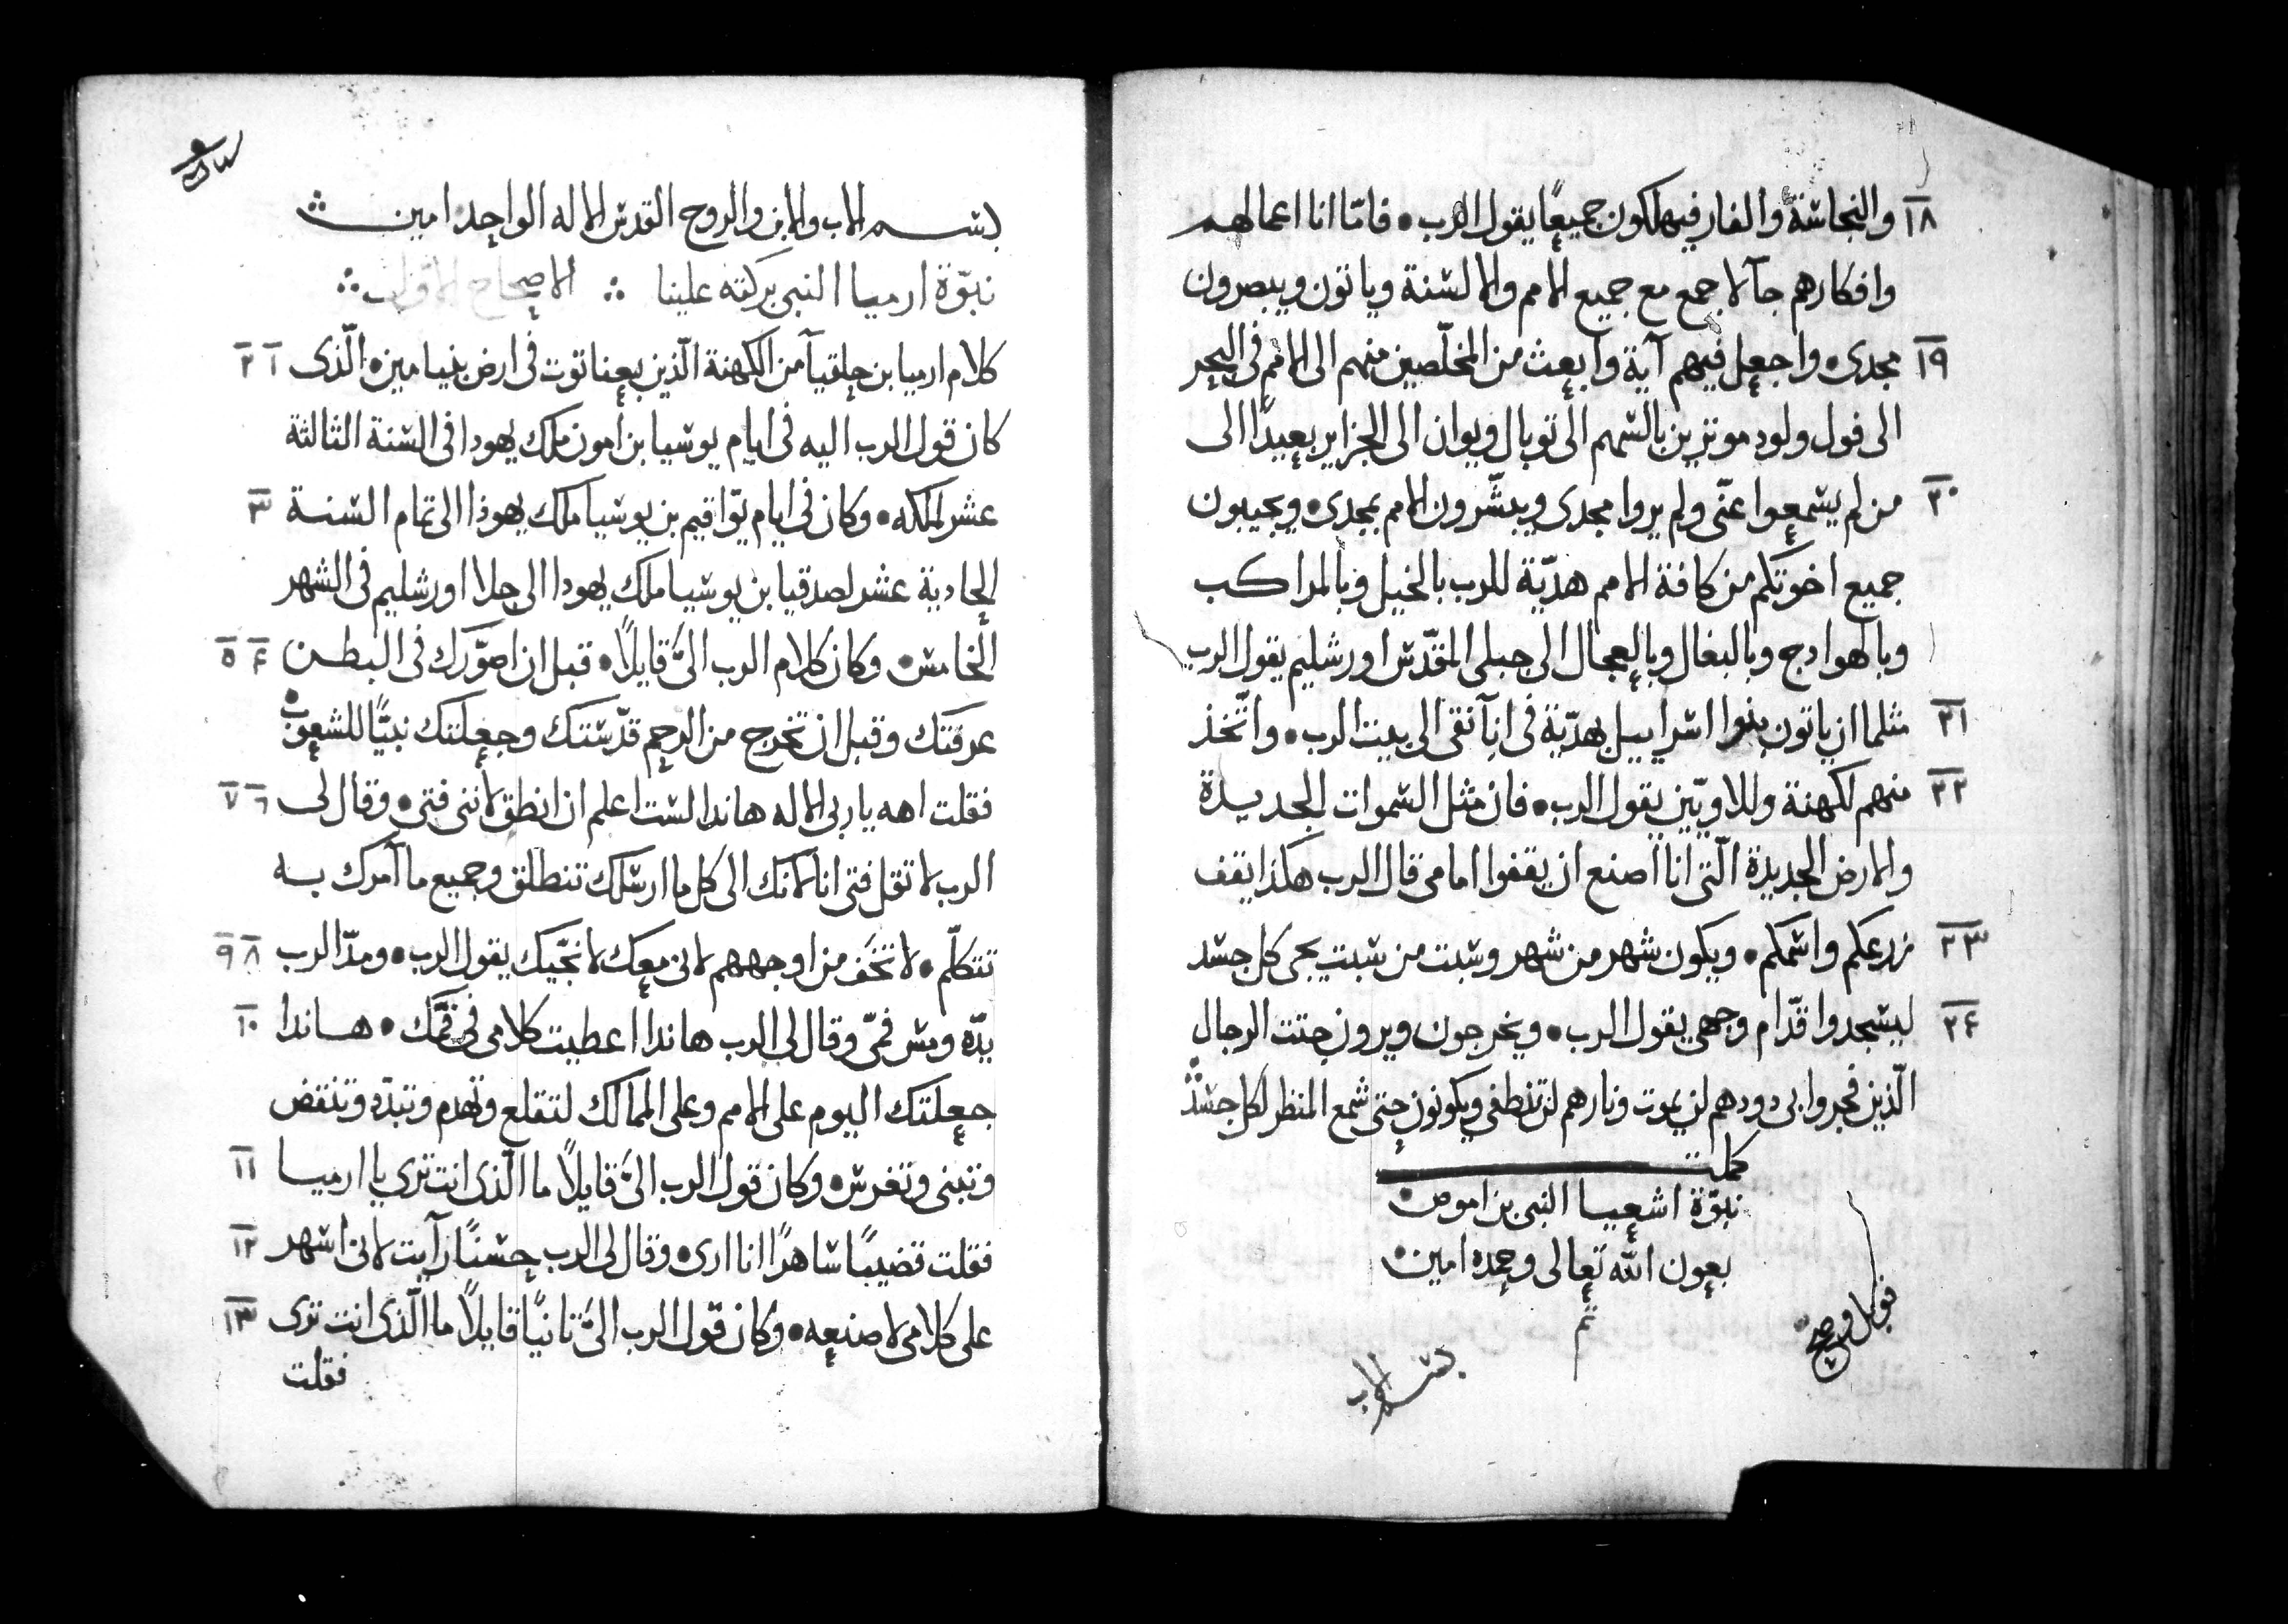 ١٨ والنجاسة والفار فيهلكون جميعًا يقول الرب • فامّا انا اعمالهم
وافكارهم جآ لاجمع مع جميع الامم والالسنة وياتون ويبصرون
١٩ مجدى • واجعل فيهم آية وابعث من المخلّصين منهم الى الامم فى البحر
الى فول ولود موترين بالسهم الى توبال ويوان الى الجزاير بعيدًا الى
٢٠ من لم يسمعوا عنّى ولم يروا مجدى ويبشّرون الامم بمجدى • ويجيبون
جميع اخوتكم من كافة الامم هديّة للرب بالخيل وبالمراكب
وبالهوادج وبالبغال وبالعجال الى جبلى المقدّس اورشليم يقول الرب
٢١ مثلما ان ياتون بنوا اسراييل بهديّة فى انآ نقى الى بيت الرب • واتّخذ
٢٢ منهم لكهنة وللاويّين يقول الرب • فان مثل السموات الجديدة
والارض الجديدة الّتى انا اصنع ان يقفوا امامى قال الرب هكذا يقف
٢٣ زرعكم واسمكم • ويكون شهر من شهر وسبت من سبت يجى كل جسد
٢۴ ليسجدوا قدّام وجهى يقول الرب • ويخرجون ويرون جتت الرجال
الّذين فجروا بى دودهم لن يموت ونارهم لن تنطفى ويكونون حتى شبع المنظر لكل جسد
كملت
نبوّة اشعيا النبى بن اموص •
بعون الله تعالى وحمده امين •
تم
قوبل وصح
بسم الاب
بسم الاب والابن والروح القدس الاله الواحد امين
نبوّة ارميا النبى بركته علينا ∴ الاصحاح الاول ∴
كلام ارميا بن حلقيآ من الكهنة الّذين بعناتوت فى ارض بنيامين • الّذى ١ ٢
كان قول الرب اليه فى ايام يوشيا بن امون ملك يهودا فى السنة الثالثة
عشر لملكه • وكان فى ايام يوّاقيم بن يوشيا ملك يهوذا الى تمام السنة ٣
الحادية عشر لصدقيا بن يوشيا ملك يهودا الى جلا اورشليم فى الشهر
الخامس • وكان كلام الرب الىَّ قايلًا • قبل ان اصوّرك فى البطن ۴ ٥
عرفتك وقبل ان تخرج من الرحم قدّستك وجعلتك نبيًّا للشعوب •
فقلت اهه يا ربى الاله هاندا لست اعلم ان انطق لاننى فتى • وقال لى ٦ ٧
الرب لا تقل فتى انا لانك الى كل ما ارسلك تنطلق وجميع ما آمرك به
تتكلّم • لا تخَف من اوجههم لانى معك لانجّيك يقول الرب • ومدّ الرب ٨ ٩
يدّه ومس فمّى وقال لى الرب هاندا اعطيت كلامى فى فمّك • هاندا ١٠
جعلتك اليوم على الامم وعلى الممالك لتقلع وتهدم وتبدّه وتنقض
وتبنى وتغرس • وكان قول الرب الىَّ قايلًا ما الّذى انت ترى يا ارميا ١١
فقلت قضيبًا ساهرًا انا ارى • وقال لى الرب حسنًا رآيت لانى اسهر ١٢
على كلامى لاصنعه • وكان قول الرب الىَّ تانيًا قايلًا ما الّذى انت ترى ١٣
فقلت